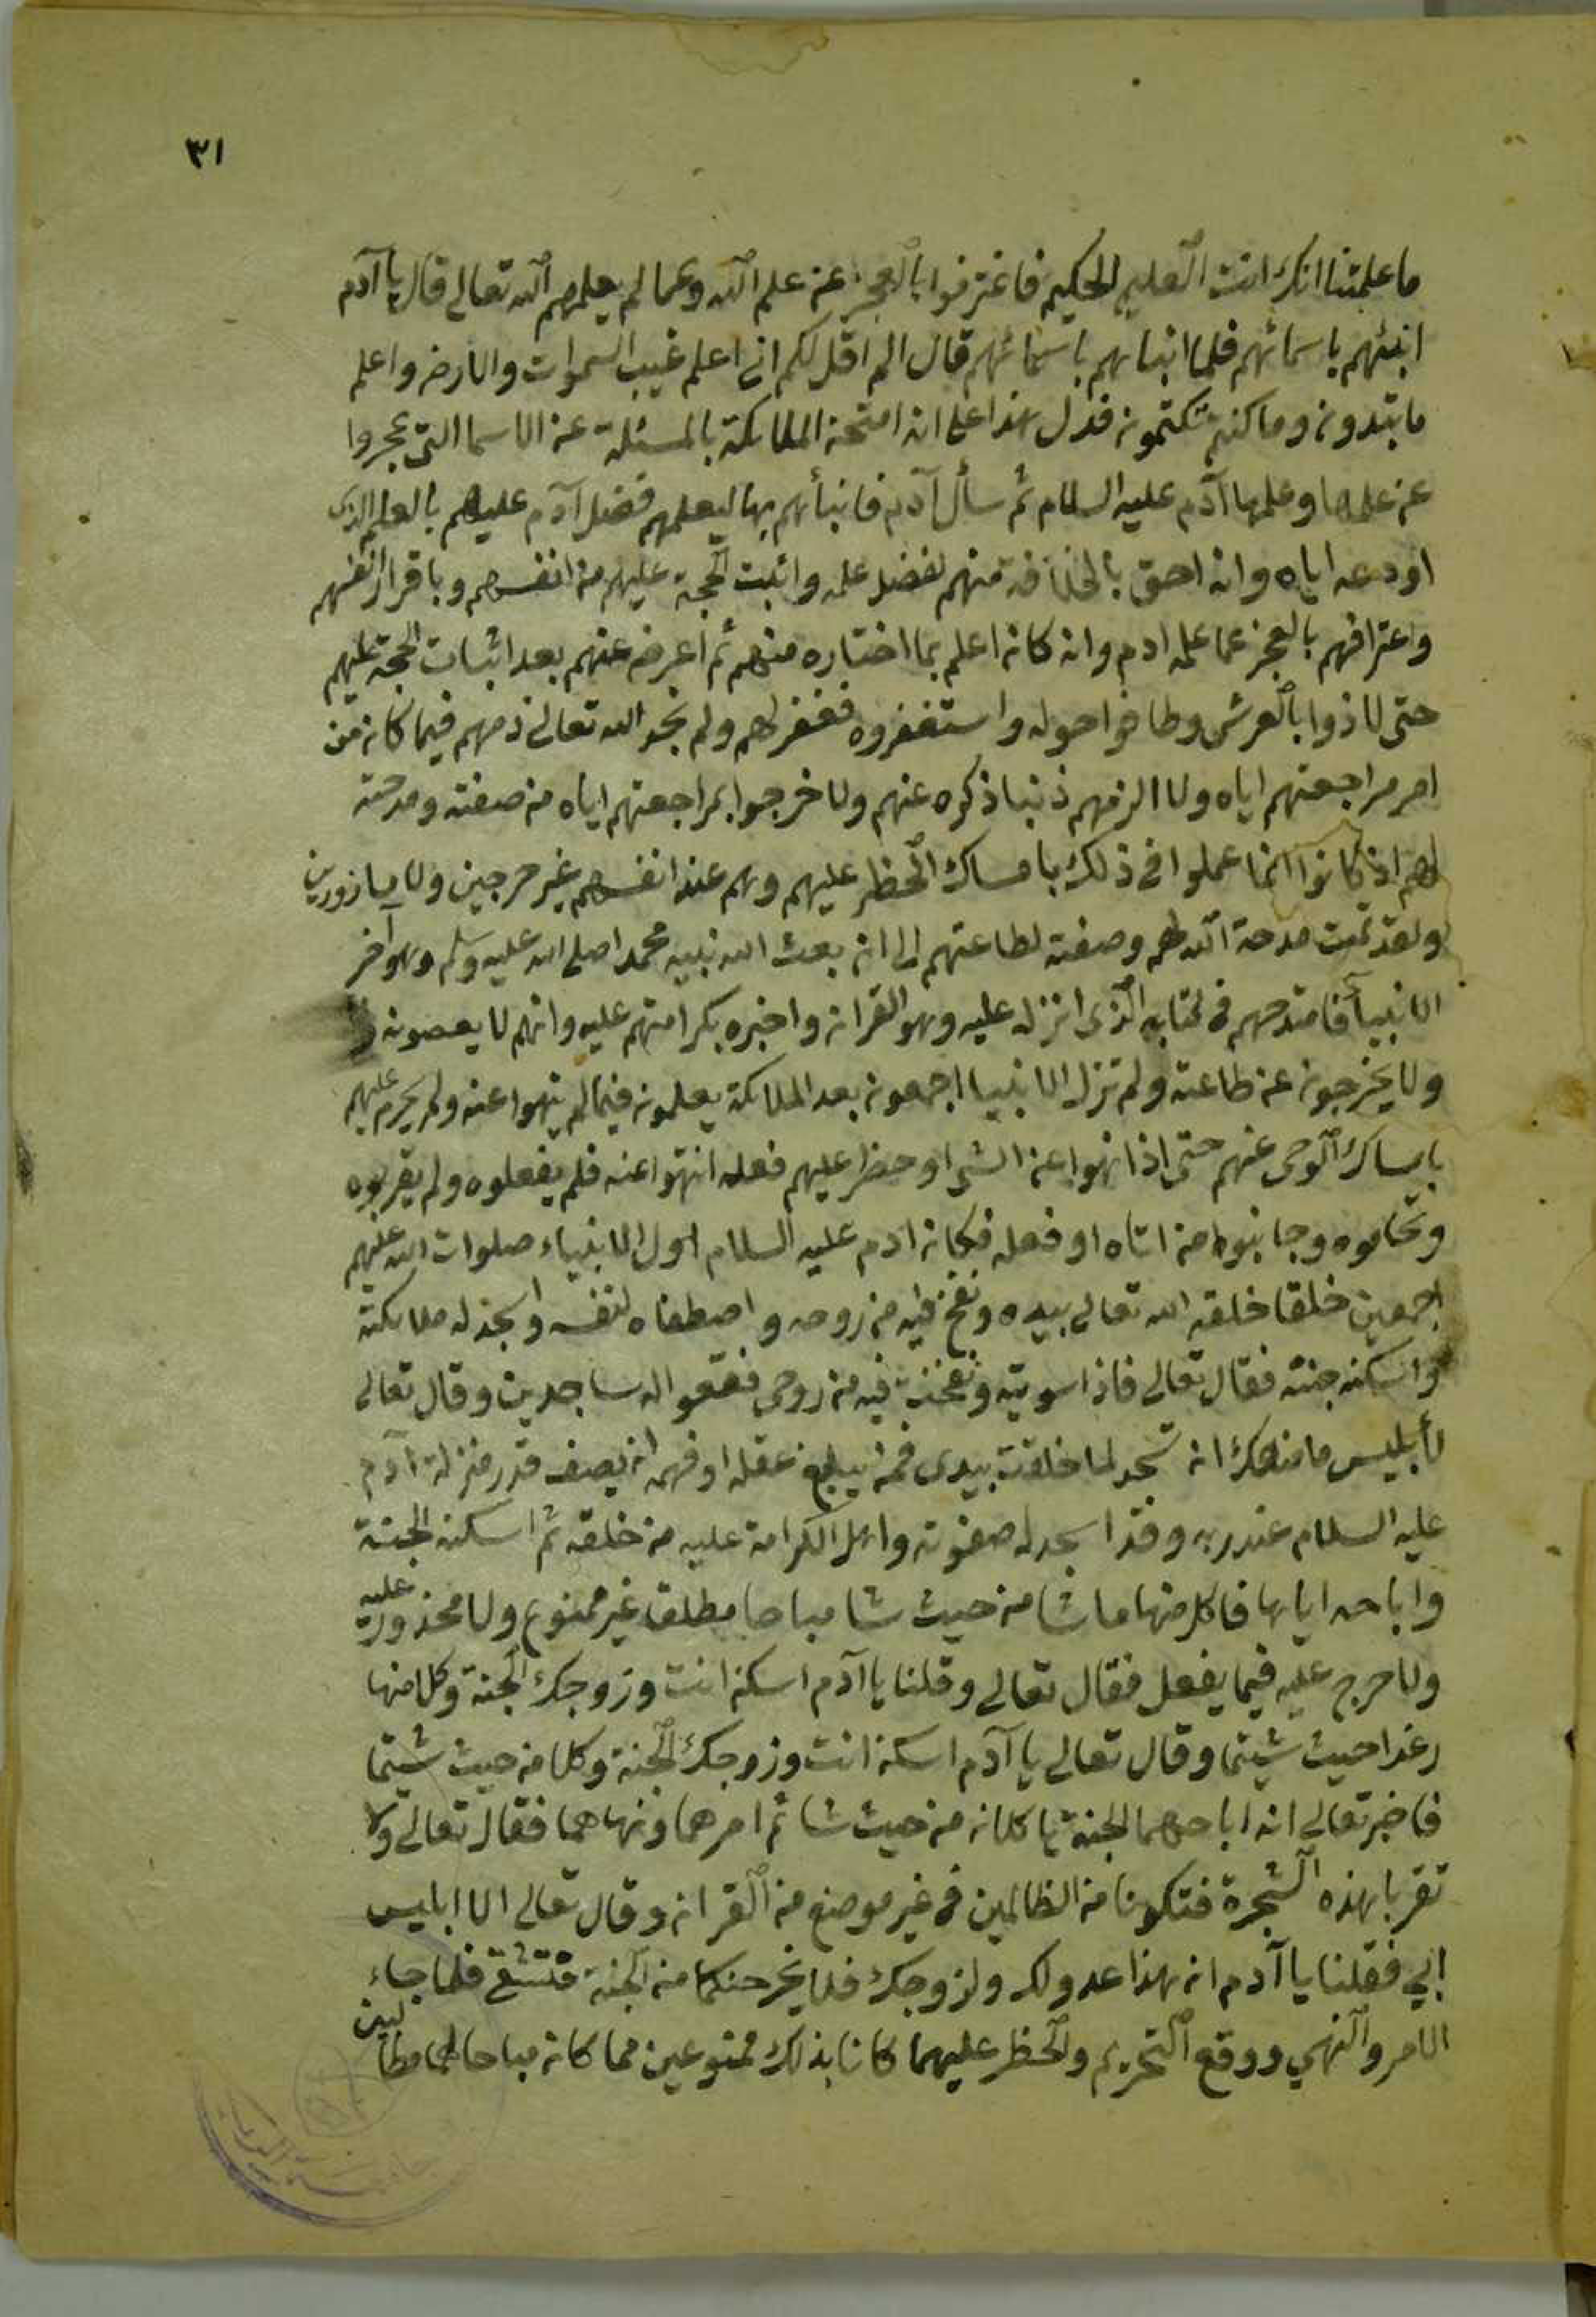 ٣١
ما علمتنا انك انت العليم الحكيم فاعترفوا بالعجز عن علم الله وعما لم يعلمهم الله تعالى قال يا آدم
انبئهم باسمائهم فلما انباهم باسمائهم قال الم اقل لكم اني اعلم غيب السموات والارض واعلم
ما تبدون وما كنتم تكتمون فدل هذا على انه امتحن الملائكة بالمسئلة عن الاسما التي عجزوا
عن علمها وعلمها آدم عليه السلام ثم سأل آدم فانبأهم بها ليعلمهم فضل آدم عليهم بالعلم الذى
اودعه اياه وانه احق بالخلافة منهم لفضل علمه واثبت الحجة عليهم من انفسهم وباقرار انفسهم
واعترافهم بالعجز عما علمه ادم وانه كان اعلم بما اختباره منهم ثم اعرض عنهم بعد اثبات الحجة عليهم
حتى لاذوا بالعرش وطافوا حوله واستغفروه فغفر لهم ولم نجد الله تعالى ذمهم فيما كان من
امر مراجعتهم اياه ولا الزمهم ذنبا ذكره عنهم ولا خرجوا بمراجعتهم اياه من صفته ومدحته
لهم اذ كانوا انما عملوا في ذلك بامساك الحظر عليهم وهم عند انفسهم غير حرجين ولا مازورين
ولقد تمت مدحة الله لهم وصفته لطاعتهم الى ان بعث الله نبيه محمدا صلى الله عليه وسلم وهو آخر
الانبيآ فامتدحهم في كتابه الذى انزله عليه وهو القران واخبره بكرامتهم عليه وانهم لا يعصونه
ولا يخرجون عن طاعته ولم تزل الانبيا اجمعون بعد الملائكة يعملون فيما لم ينهوا عنه ولم يحرم عليهم
بامساك الوحى عنهم حتى اذا نهوا عن الشى او حظر عليهم فعله انتهوا عنه فلم يفعلوه ولم يقربوه
وتحاموه وجانبوا من اتاه او فعله فكان ادم عليه السلام اول الانبياء صلوات الله عليهم
اجمعين خلقا خلقه الله تعالى بيده ونفخ فيه من روحه واصطفاه لنفسه واسجد له ملائكته
واسكنه جنته فقال تعالى فاذا سويته ونفخت فيه من روحي فقعوا له ساجدين وقال تعالى
لأبليس ما منعك ان تسجد لما خلقت بيدى فمن يبلغ عقله او فهمه ان يصف قدر منزلة آدم
عليه السلام عند ربه وقد اسجد له صفوته واهل الكرامة عليه من خلقه ثم اسكنه الجنة
واباحه اياها فاكل منها ما شا من حيث شا مباحا مطلقا غير ممنوع ولا محذور عليه
ولا حرج عليه فيما يفعل فقال تعالى وقلنا يا آدم اسكن انت وزوجك الجنة وكلا منها
رغدا حيث شيتما وقال تعالى يا آدم اسكن انت وزوجك الجنة وكلا من حيث شيتما
فاخبر تعالى انه اباحهما الجنة ياكلان من حيث شا ثم امرهما ونهاهما فقال تعالى ولا
تقربا هذه الشجرة فتكونا من الظالمين في غير موضع من القران وقال تعالى الا ابليس
ابي فقلنا يا آدم ان هذا عدو لك ولزوجك فلا يخرجنكما من الجنة فتشقى فلما جاء
الامر والنهي ووقع التحريم والحظر عليهما كانا بذلك ممنوعين مما كان مباحا لهما مطلقين